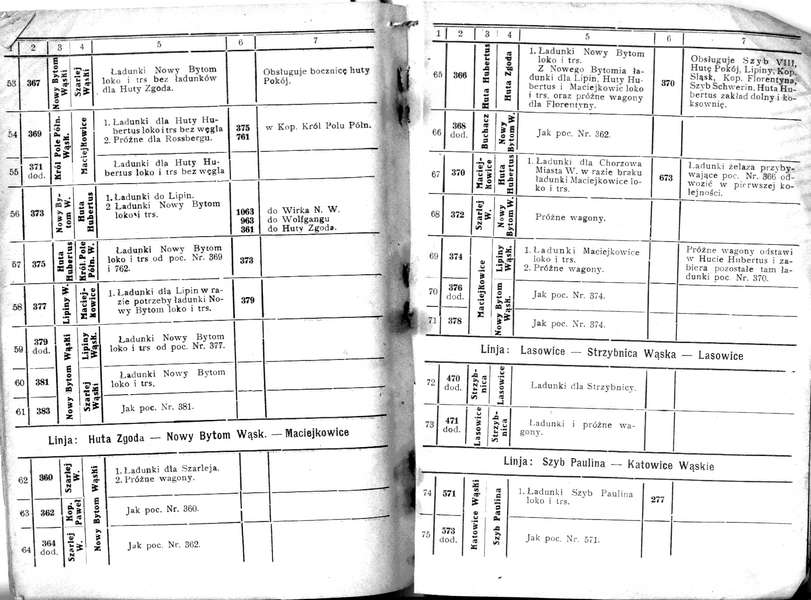 1 2 3 4 5 6 7
53 367 Nowy Bytom Wąski Szarlej Wąski Ładunki Nowy Bytom
loko i trs bez ładunków
dla Huty Zgoda.
Obsługuje bocznicę huty
Pokój.
54 369 Król Pole Półn. Wąsk. Maciejkowice 1. Ładunki dla Huty Hu-
bertus loko i trs bez węgla
2. Próżne dla Rossbergu.
375
761
w Kop. Król Polu Półn.
55 371
dod.
Ładunki dla Huty Hu-
bertus loko i trs bez węgla
56 373 Nowy By-
tom W.
Huta
Hubertus
1. Ładunki do Lipin.
2 Ładunki Nowy Bytom
loko i trs.
1063 do Wirka N. W.
963 do Wolfgangu
361 do Huty Zgoda.
57 375 Huta
Hubertus
Król. Pole
Półn. W.
Ładunki Nowy Bytom
loko i trs od poc. Nr. 369
i 762.
373
58 377 Lipiny W. Maciej-
kowice
1. Ładunki dla Lipin w ra-
zie potrzeby ładunki No-
wy Bytom loko i trs.
379
59 379
dod.
Nowy Bytom Wąski
Lipiny
Wąsk.
Ładunki Nowy Bytom
loko i trs od poc. Nr. 377.
60 381 Szarlej
Wąski
Ładunki Nowy Bytom
loko i trs.
61 383 Jak poc. Nr. 381.
Linja: Huta Zgoda — Nowy Bytom Wąsk. — Maciejkowice
62 360 Szarlej
W.
Nowy Bytom Wąski
1. Ładunki dla Szarleja.
2. Próżne wagony.
63 362 Kop.
Paweł
Jak poc. Nr. 360.
64 364
dod.
Szarlej
W.
Jak poc. Nr. 362.
1 2 3 4 5 6 7
65 366 Huta Hubertus Huta Zgoda 1. Ładunki Nowy Bytom
loko i trs.
Z Nowego Bytomia ła-
dunki dla Lipin, Huty Hu-
bertus i Maciejkowic loko
i trs. oraz próżne wagony
dla Florentyny.
370
Obsługuje Szyb VIII,
Hutę Pokój, Lipiny, Kop.
Śląsk, Kop. Florentyna,
Szyb Schwerin, Huta Hu-
bertus zakład dolny i ko-
ksownię.
66 368
dod.
Buchacz Nowy
Bytom W.
Jak poc. Nr. 362.
67 370 Maciej-
kowice
Huta
Hubertus
1. Ładunki dla Chorzowa
Miasta W. w razie braku
ładunki Maciejkowice lo-
ko i trs.
673
Ładunki żelaza przyby-
wające poc. Nr. 366 od-
wozić w pierwszej ko-
lejności.
68 372 Szarlej
W.
Nowy
Bytom W.
Próżne wagony.
69 374 Maciejkowice Lipiny
Wąsk.
1. Ładunki Maciejkowice
loko i trs.
2. Próżne wagony.
Próżne wagony odstawi
w Hucie Hubertus i za-
biera pozostałe tam ła-
dunki poc. Nr. 370.
70 376
dod.
Nowy Bytom
Wąsk.
Jak poc. Nr. 374.
71 378 Jak poc. Nr. 374.
Linja: Lasowice — Strzybnica Wąska — Lasowice
72 470
dod.
Strzyb-
nica
Lasowice
Ładunki dla Strzybnicy.
73 471
dod.
Lasowice Strzyb-
nica
Ładunki i próżne wa-
gony.
Linja: Szyb Paulina — Katowice Wąskie
74 571 Katowice Wąski Szyb Paulina 1. Ładunki Szyb Paulina
loko i trs.
277
75 573
dod.
Jak poc. Nr. 571.